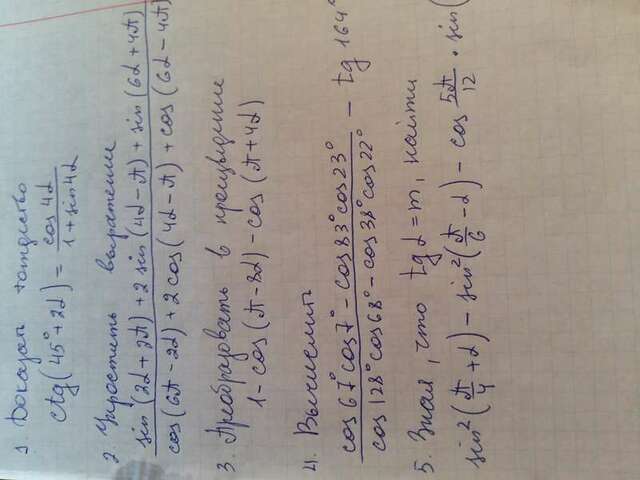 1. Доказать тождество
ctg(45°+2α) = cos4α / 1+sin4α
2. Упростить выражение
sin(2α+2π)+2sin(4α-π)+sin(6α+4π) / cos(6π-2α)+2cos(4α-π)+cos(6α-4π)
3. Преобразовать в произведение
1-cos(π-8α)-cos(π+4α)
4. Вычислить
cos67°cos7°-cos83°cos23° / cos128°cos68°-cos38°cos22° - tg164°
5. Зная, что tgα=m, найти
sin²(π/4+α)-sin²(π/6-α)-cos5π/12·sin(